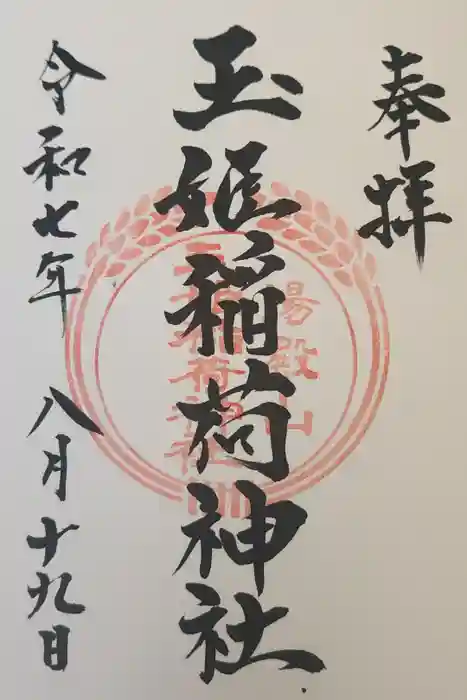 奉拝
玉姫稲荷神社
令和七年 八月十九日